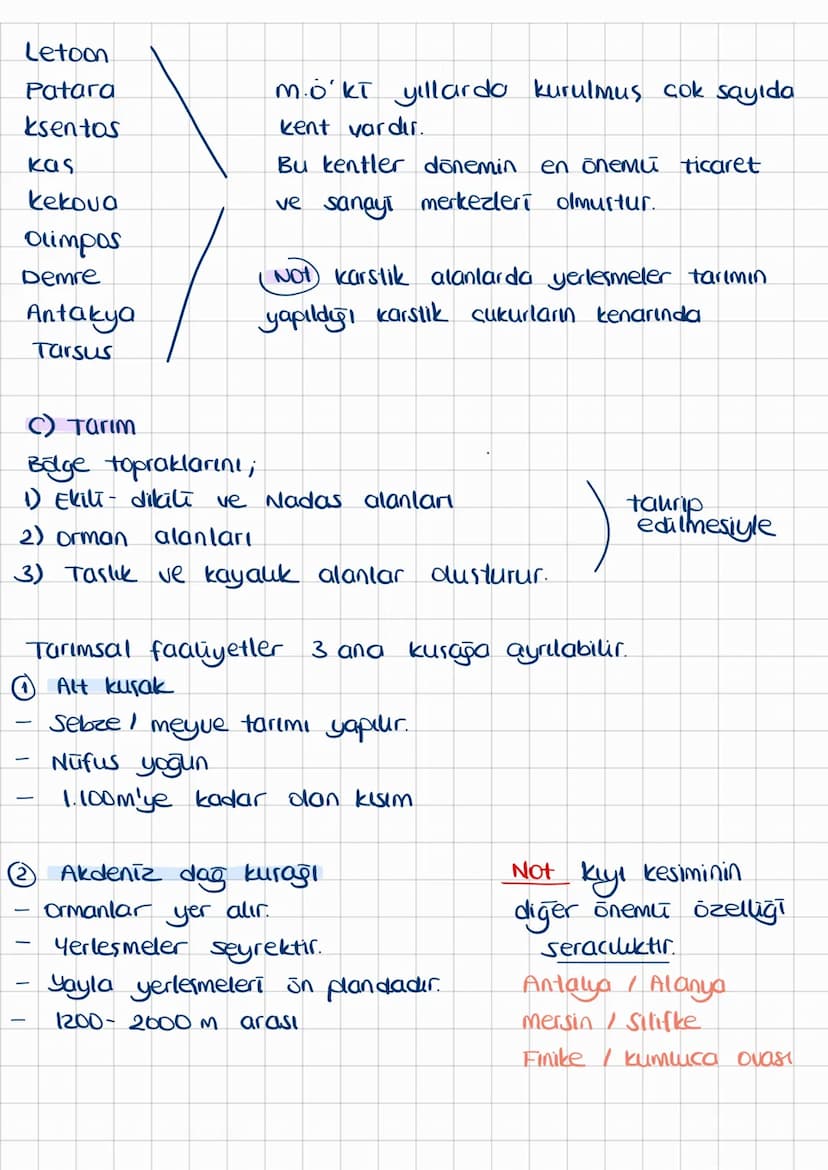 Letoon
Patara
Ksentos
Kaş
Kekova
Olimpos
Demre
Antakya
Tarsus
M.Ö'ki yıllarda kurulmuş çok sayıda
kent vardır.
Bu kentler dönemin en önemli ticaret
ve sanayi merkezleri olmuştur.
Not Karstik alanlarda yerleşmeler tarımın
yapıldığı karstik çukurların kenarında
C) Tarım
Bölge topraklarını;
1) Ekili-dikili ve Nadas alanları
2) Orman alanları
3) Taşlık ve kayalık alanlar oluşturur.
tahrip
edilmesiyle
Tarımsal faaliyetler 3 ana kuşağa ayrılabilir.
1 Alt kuşak
- Sebze / meyve tarımı yapılır.
- Nüfus yoğun
- 1.100m'ye kadar olan kısım
2 Akdeniz dağ kuşağı
- Ormanlar yer alır.
- Yerleşmeler seyrektir.
- Yayla yerleşmeleri ön plandadır.
- 1200-2000 m arası
Not Kıyı kesiminin
diğer önemli özelliği
seracılıktır.
Antalya / Alanya
Mersin / Silifke
Finike / Kumluca ovası